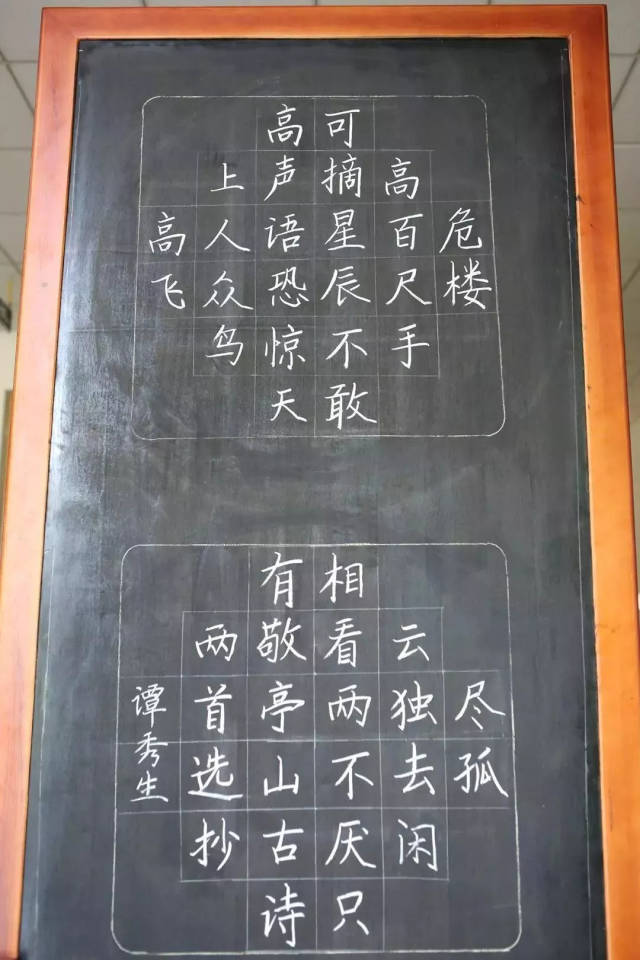 危楼
高百尺手
可摘星辰不敢
高声语恐惊天
上人众鸟
高飞
尽孤
云独去闲
相看两不厌只
有敬亭山古诗
两首选抄
谭秀生